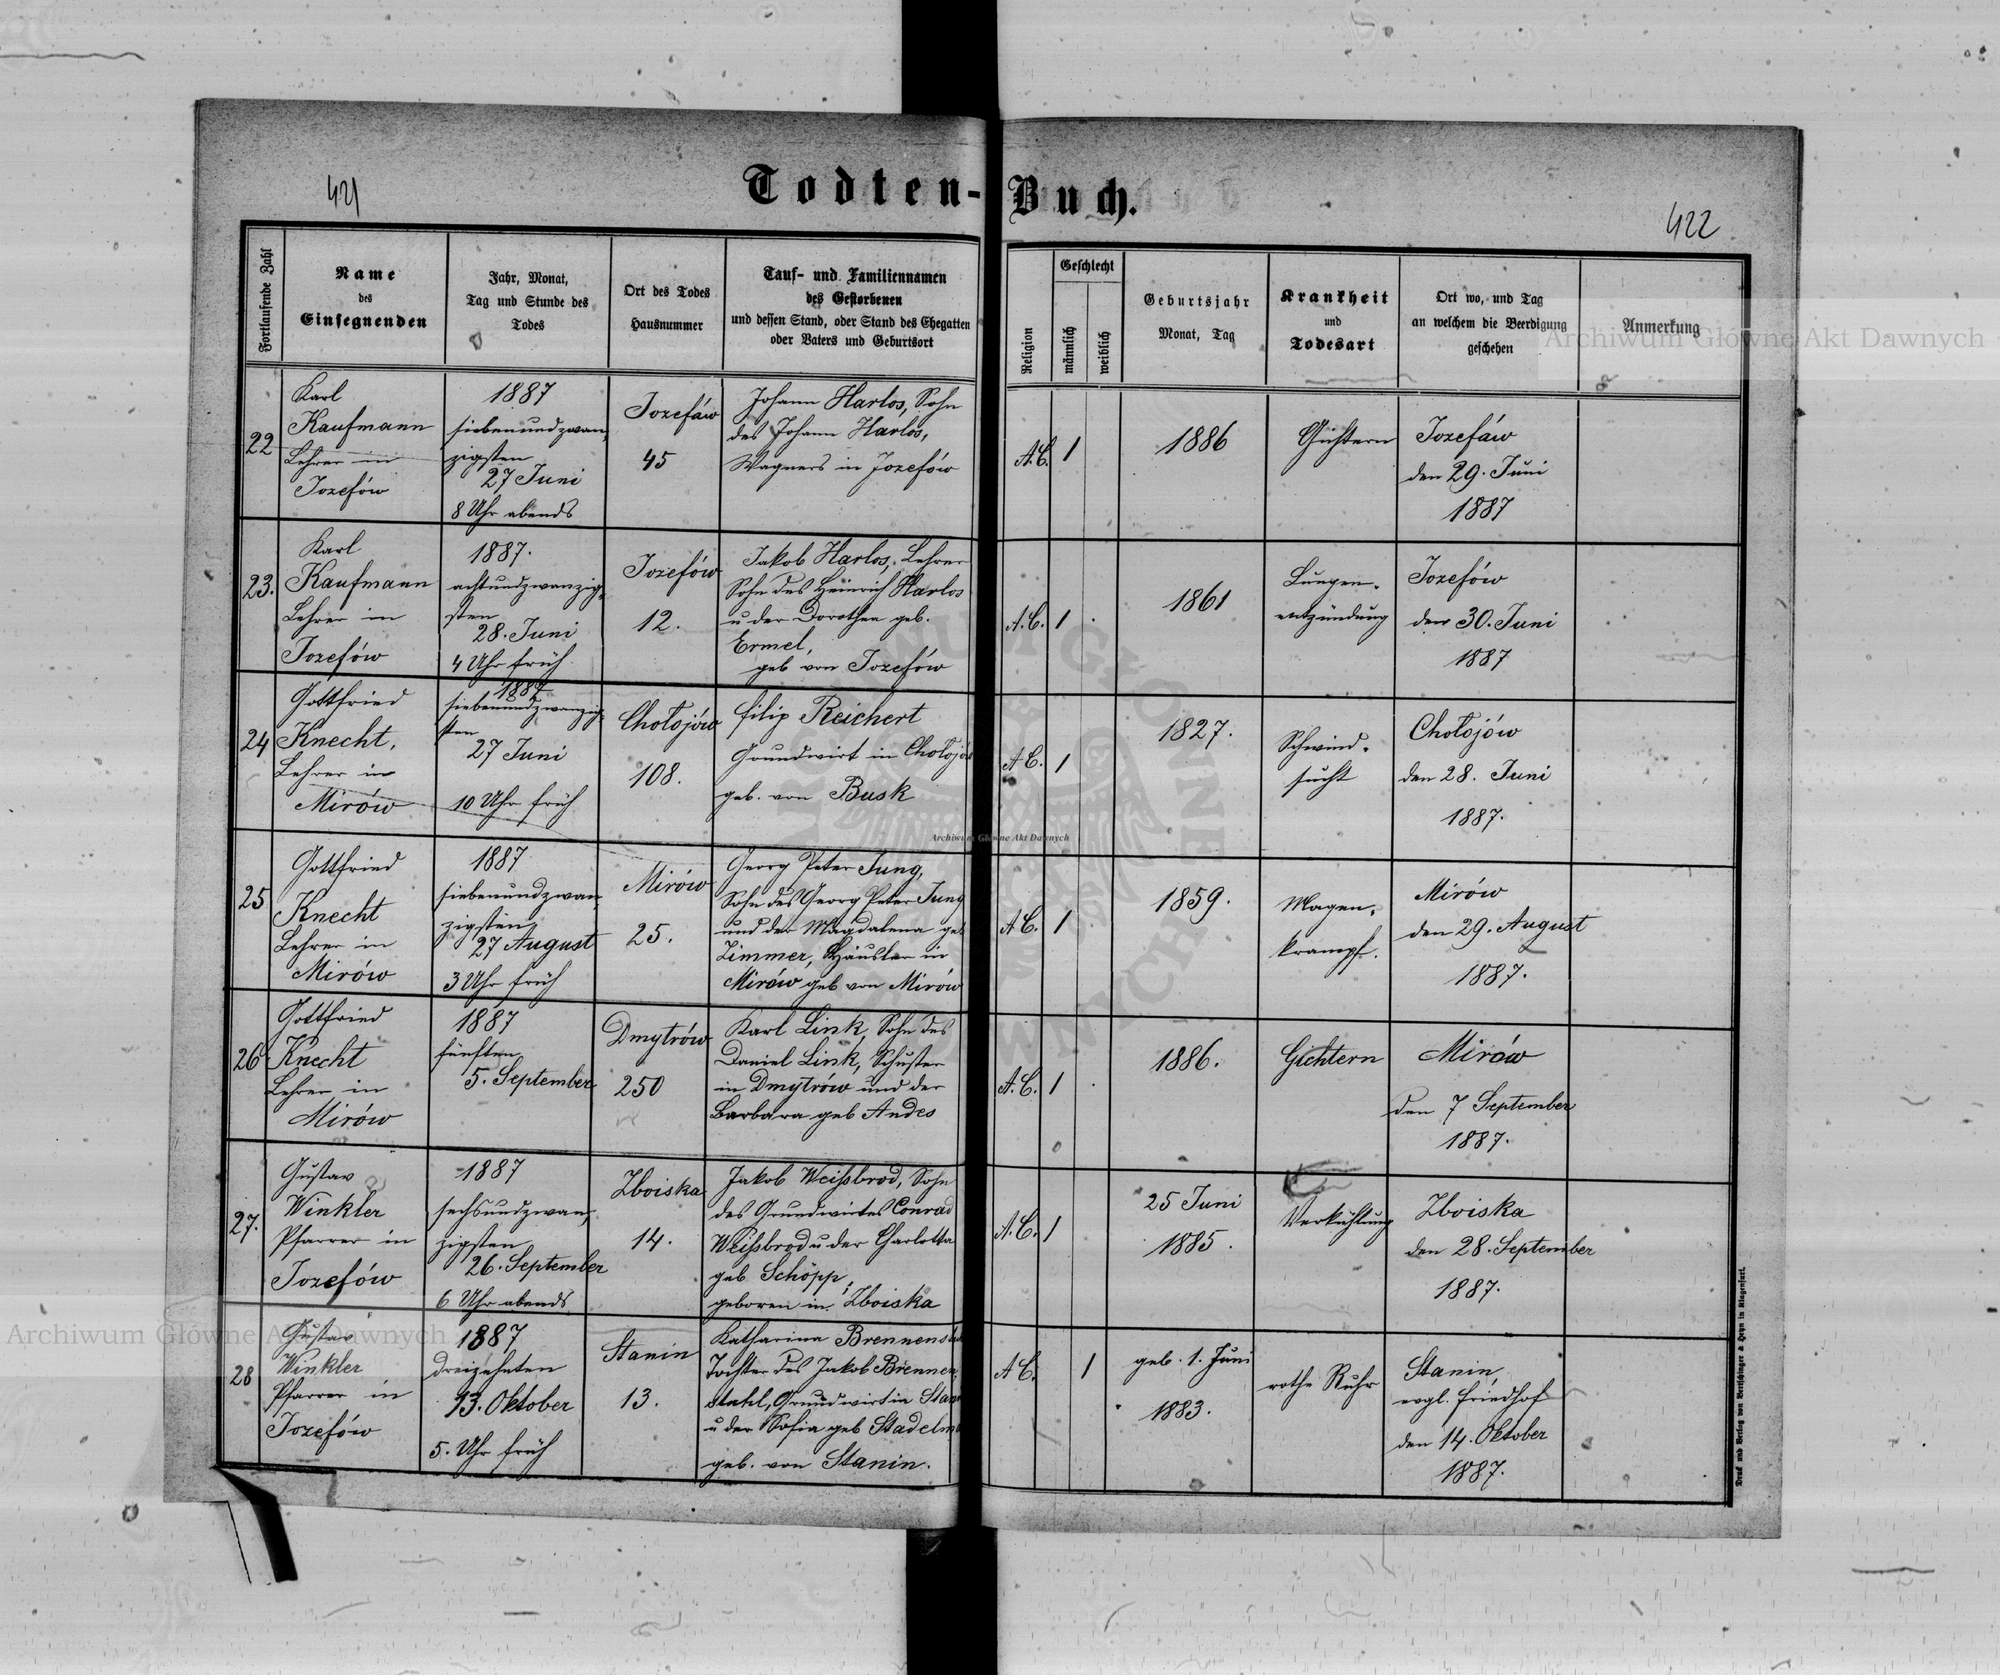 421
Todten-Buch.
422
Fortlaufende Zahl
Name
des
Einsegnenden
Jahr, Monat,
Tag und Stunde des
Todes
Ort des Todes
Hausnummer
Tauf- und Familiennamen
des Gestorbenen
und dessen Stand, oder Stand des Ehegatten
oder Vaters und Geburtsort
Religion
Geschlecht
männlich
weiblich
Geburtsjahr
Monat, Tag
Krankheit
und
Todesart
Ort wo, und Tag
an welchem die Beerdigung
geschehen
Anmerkung
22
Karl
Kaufmann
Lehrer in
Jozefów
1887
siebenundzwan-
zigsten
27 Juni
8 Uhr abends
Jozefów
45
Johann Harlos, Sohn
des Johann Harlos,
Wagners in Jozefów
A.C.
1
1886
Gichtern
Jozefów
den 29. Juni
1887
23.
Karl
Kaufmann
Lehrer in
Jozefów
1887.
achtundzwanzig-
sten
28. Juni
4 Uhr früh
Jozefów
12.
Jakob Harlos, Lehrer
Sohn des Heinrich Harlos
u der Dorothea geb.
Ermel,
geb von Jozefów
A.C.
1
1861
Lungen-
entzündung
Jozefów
den 30. Juni
1887
24
Gottfried
Knecht,
Lehrer in
Mirów
1887
siebenundzwanzig-
sten
27 Juni
10 Uhr früh
Chołojów
108.
Filip Reichert
Grundwirt in Chołojów
geb. von Busk
A C.
1
1827.
Schwind-
sucht
Chołojów
den 28. Juni
1887.
25
Gottfried
Knecht
Lehrer in
Mirów
1887
siebenundzwan-
zigsten
27 August
3 Uhr früh
Mirów
25.
Georg Peter Jung,
Sohn des Georg Peter Jung
und der Magdalena geb
Zimmer, Häusler in
Mirów geb von Mirów
A C.
1
1859.
Magen-
krampf.
Mirów
den 29. August
1887.
26
Gottfried
Knecht
Lehrer in
Mirów
1887
fünften
5. September
Dmytrów
250
Karl Link, Sohn des
Daniel Link, Schuster
in Dmytrów und der
Barbara geb Andes
A. C.
1
1886.
Gichtern
Mirów
den 7 September
1887.
27.
Gustav
Winkler
Pfarrer in
Jozefów
1887
sechsundzwan-
zigsten
26. September
6 Uhr abends
Zboiska
14.
Jakob Weißbrod, Sohn
des Grundwirtes Conrad
Weißbrod u der Charlotta
geb Schöpp,
geboren in Zboiska
A. C.
1
25 Juni
1885.
Verkühlung
Zboiska
den 28. September
1887.
28
Gustav
Winkler
Pfarrer in
Jozefów
1887
dreizehnten
13. Oktober
5. Uhr früh
Stanin
13.
Katharina Brennenst
Tochter des Jakob Brennen-
stahl, Grundwirt in Stan
u der Sofia geb Stadelm
geb. von Stanin.
A C.
1
geb. 1. Juni
1883.
rothe Ruhr
Stanin,
evgl. Friedhof
den 14. Oktober
1887.
Druck und Verlag von Bertschinger & Heyn in Klagenfurt.
Archiwum Główne Akt Dawnych
Archiwum Główne Akt Dawnych
Archiwum Główne Akt Dawnych